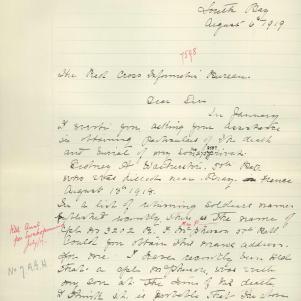 South Bay
August 6th 1919
7598
The Red Cross Information Bureau.
Dear Sirs
In January
I wrote you asking your assistance
in obtaining Particulars of the death
and burial of my son
Sidney A
who was killed near Bray France
August 1918.
In a list of returning soldiers names
published recently the name of
Cpl No 3202 R. J. McPherson
Could you obtain this mans address
for me. I have recently been told
that a Cpl McPherson, was with
my son at the time of his death,
& I think it is probable that the man